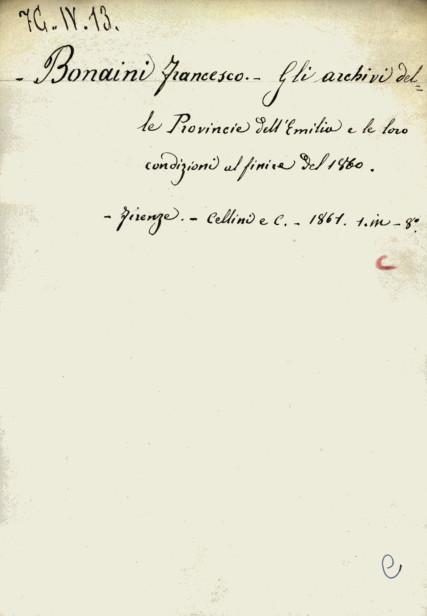 7G.-IV.13.
- Bonaini Francesco.- Gli archivi del=
le Provincie dell'Emilia e le loro
condizioni al finire del 1860.
- Firenze. - Cellini e C. - 1861. 1. in - 8°.
C
e